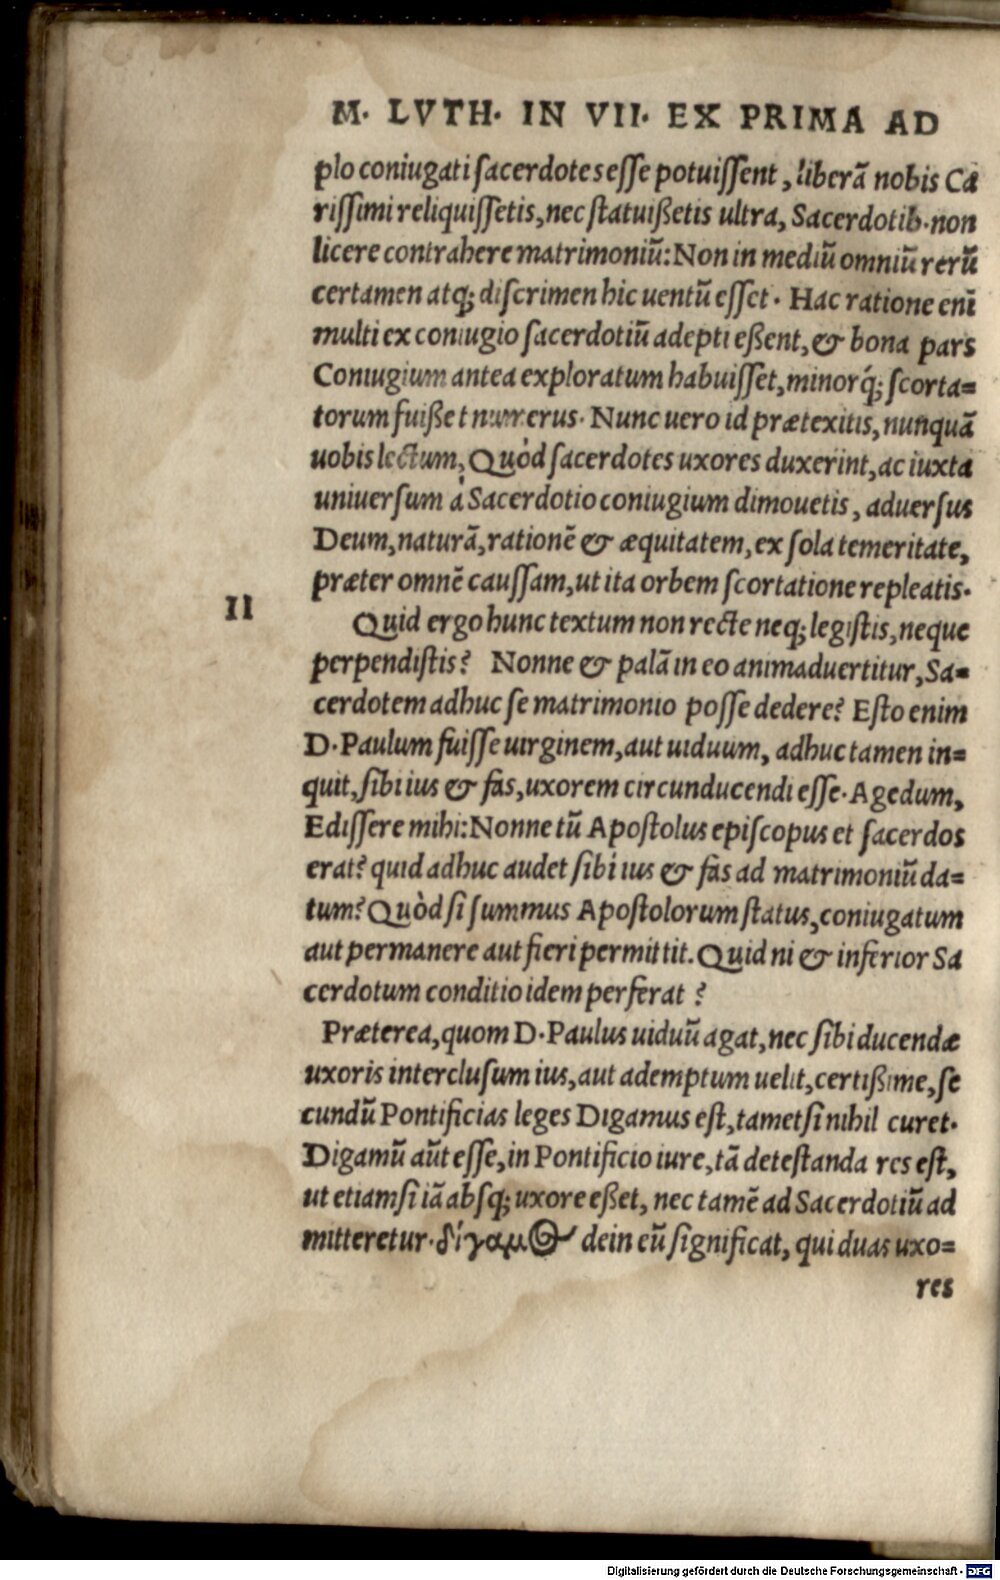 M. LVTH. IN VII. EX PRIMA AD
plo coniugati sacerdotes esse potuissent, liberã nobis Ca
rissimi reliquissetis, nec statuißetis ultra, Sacerdotib. non
licere contrahere matrimoniũ: Non in mediũ omniũ rerũ
certamen atq; discrimen hic uentũ esset. Hac ratione enĩ
multi ex coniugio sacerdotiũ adepti eßent, & bona pars
Coniugium antea exploratum habuisset, minorq́; scorta=
torum fuißet numerus. Nunc uero id prætexitis, nunquã
uobis lectum, Quòd sacerdotes uxores duxerint, ac iuxta
uniuersum à Sacerdotio coniugium dimouetis, aduersus
Deum, naturã, rationẽ & æquitatem, ex sola temeritate,
præter omnẽ caussam, ut ita orbem scortatione repleatis.
II
Quid ergo hunc textum non recte neq; legistis, neque
perpendistis? Nonne & palã in eo animaduertitur, Sa=
cerdotem adhuc se matrimonio posse dedere? Esto enim
D. Paulum fuisse uirginem, aut uiduum, adhuc tamen in=
quit, sibi ius & fas, uxorem circunducendi esse. Agedum,
Edissere mihi: Nonne tũ Apostolus episcopus et sacerdos
erat? quid adhuc audet sibi ius & fas ad matrimoniũ da=
tum? Quòd si summus Apostolorum status, coniugatum
aut permanere aut fieri permittit. Quid ni & inferior Sa
cerdotum conditio idem perferat?
Præterea, quom D. Paulus uiduũ agat, nec sibi ducendæ
uxoris interclusum ius, aut ademptum uelit, certißime, se
cundũ Pontificias leges Digamus est, tametsi nihil curet.
Digamũ aũt esse, in Pontificio iure, tã detestanda res est,
ut etiamsi iã absq; uxore eßet, nec tamẽ ad Sacerdotiũ ad
mitteretur. δίγαμος dein eũ significat, qui duas uxo=
res
Digitalisierung gefördert durch die Deutsche Forschungsgemeinschaft - DFG